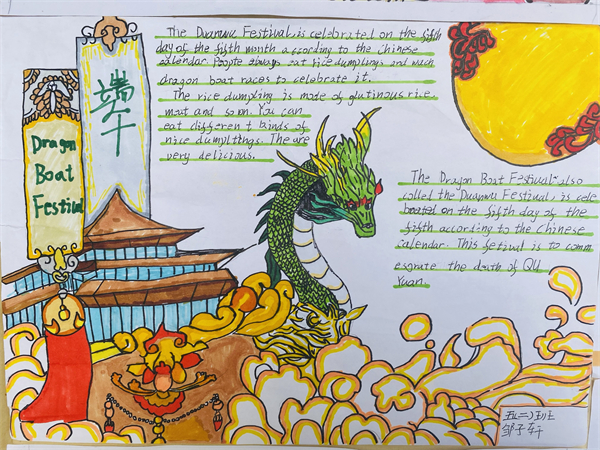 The Duanwu Festival is celebrated on the fifth
day of the fifth month according to the Chinese
calendar. People always eat rice dumplings and wach
dragon boat races to celebrate it.
The rice dumpling is made of glutinous rice,
meat and so on. You can
eat different kinds of
rice dumyltings. The are
very delicious.
端午
Dragon
Boat
Festival
The Dragon Boat Festival also
called the Duanwu Festival, is cele
boated on the fifth day of the
fifth according to the Chinese
calendar. This festival is to comm
esorate the death of QU
Yuan.
五(二)班
邹子轩